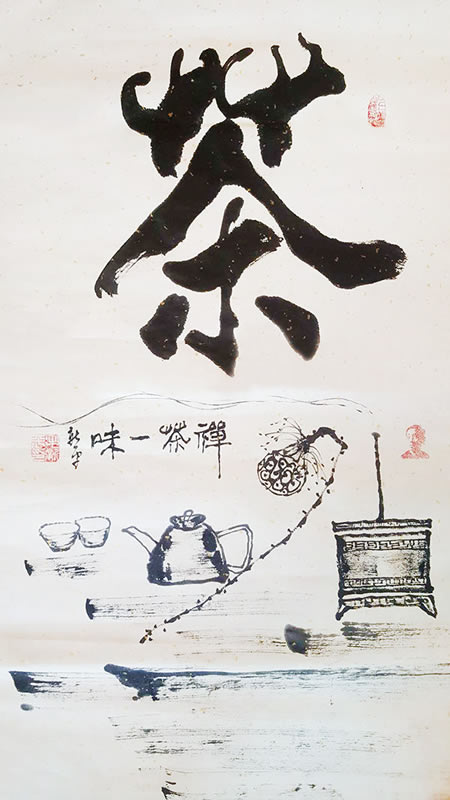 茶
禪茶一味